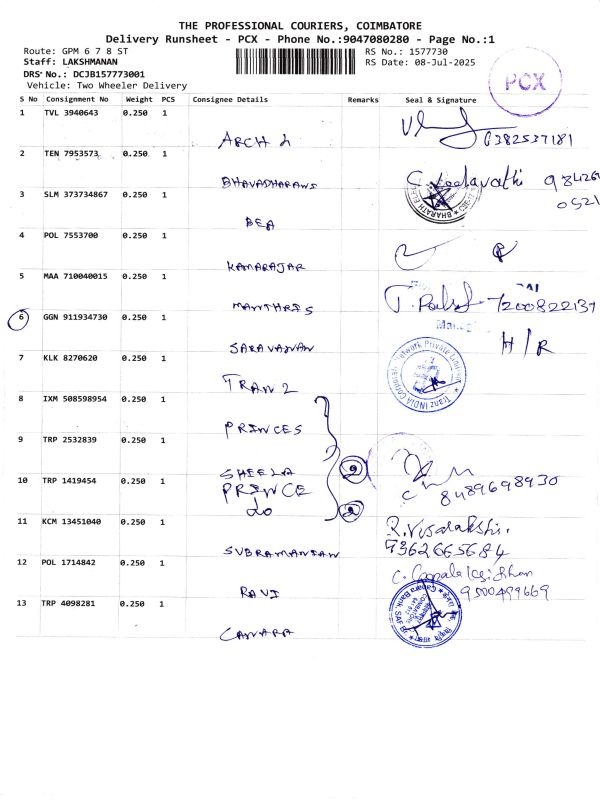 THE PROFESSIONAL COURIERS, COIMBATORE
Delivery Runsheet - PCX - Phone No.:9047080280 - Page No.:1
Route: GPM 6 7 8 ST
RS No.: 1577730
Staff: LAKSHMANAN
RS Date: 08-Jul-2025
DRS No.: DCJB157773001
Vehicle: Two Wheeler Delivery
PCX
S No Consignment No Weight PCS Consignee Details Remarks Seal & Signature
1 TVL 3940643 0.250 1
ARCH 2 6382537181
2 TEN 7953573 0.250 1
BHAVADHARANI C. Leelavathi 984269
0521
3 SLM 373734867 0.250 1
BHARATH
BEA
4 POL 7553700 0.250 1
KAMARAJAR
5 MAA 710040015 0.250 1
MANTHRIS 7200822137
6 GGN 911934730 0.250 1
SARAVANAN H/R
7 KLK 8270620 0.250 1
TRAN 2
Tranz INDIA Corporate Network Private Limited
8 IXM 508598954 0.250 1
PRINCES
9 TRP 2532839 0.250 1
SHEELA
10 TRP 1419454 0.250 1
PRINCE
do
8489698930
11 KCM 13451040 0.250 1
SUBRAMANIAN R. Visalakshi.
9362665684
12 POL 1714842 0.250 1
RAVI C. Gopala Krishnan
9500499669
13 TRP 4098281 0.250 1
CANARA
Canara Bank